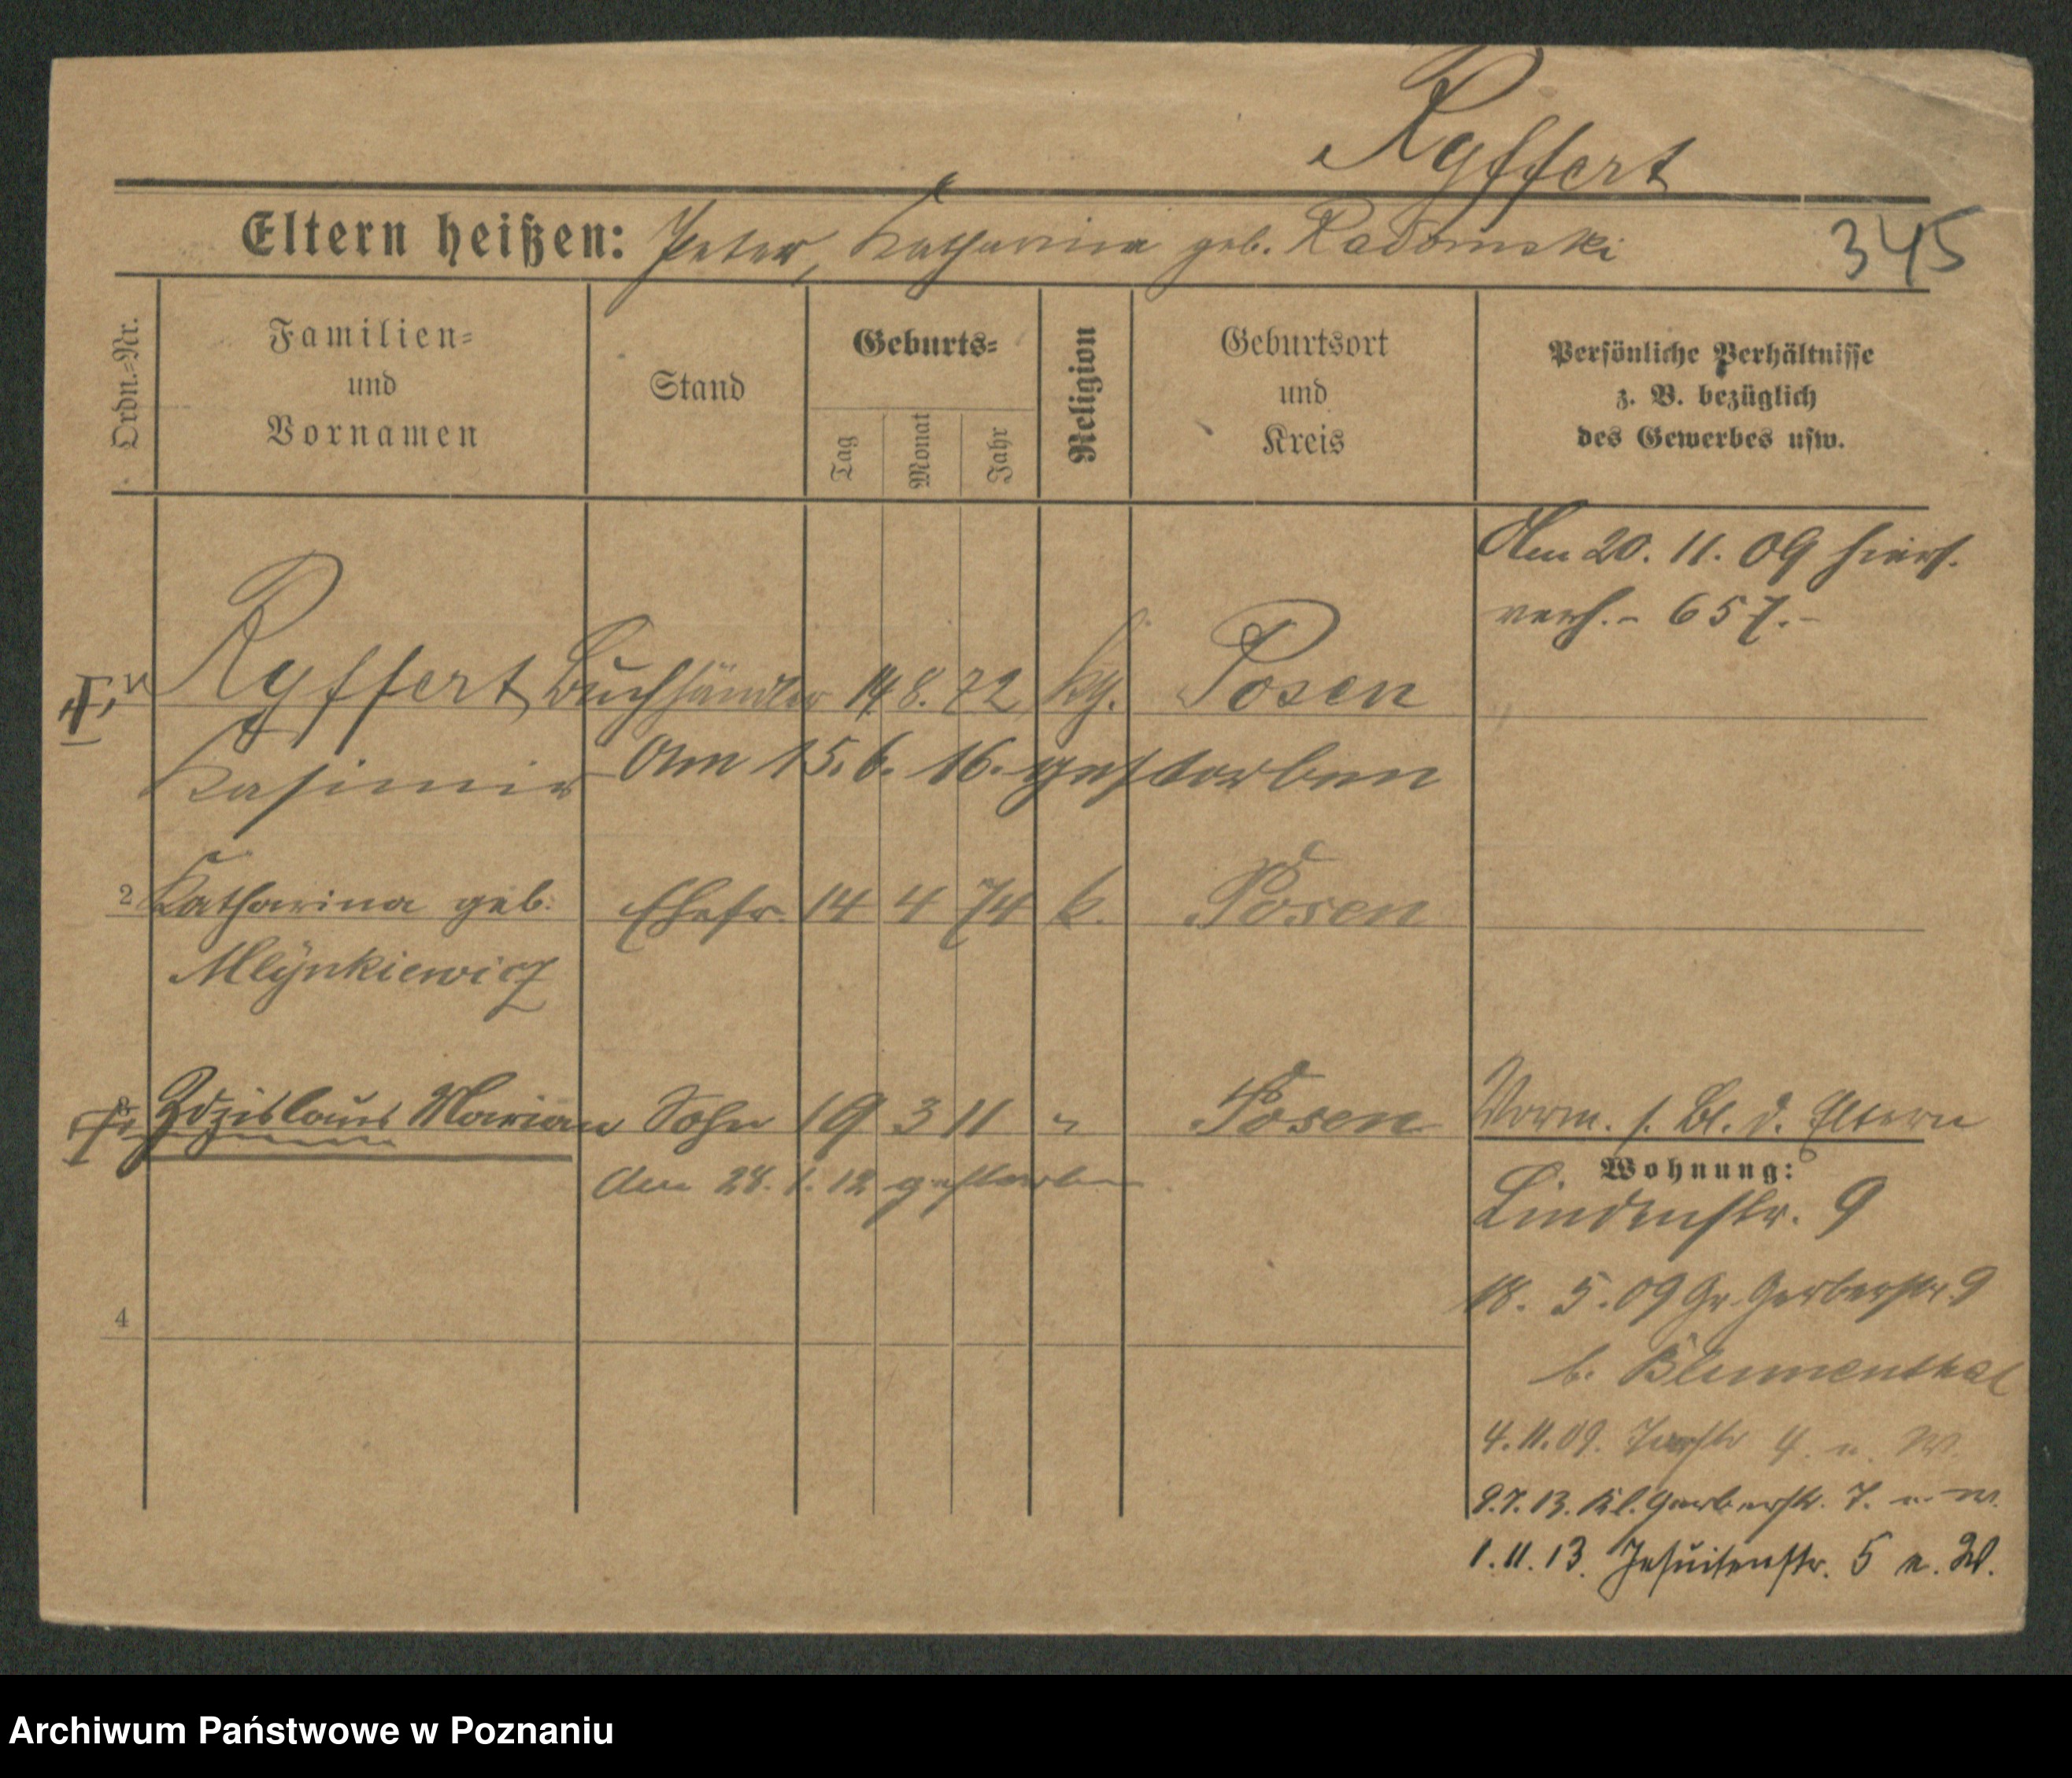 Ryffert
Eltern heißen: Peter, Katharina geb. Radomski
345
Ordn.-Nr.
Familien-
und
Vornamen
Stand
Geburts-
Tag
Monat
Jahr
Religion
Geburtsort
und
Kreis
Persönliche Verhältnisse
z. B. bezüglich
des Gewerbes usw.
Am 20. 11. 09 hiers.
verh. - 657. -
Ryffert Buchhändler 14. 8. 72 kth. Posen
Kasimir Am 15. 6. 16. gestorben
2 Katharina geb. Ehefr. 14 4 74 k. Posen
Mlynkiewicz
Zdzislaus Marian Sohn 19 3 11 " Posen
Am 28. 1. 12 gestorben
Vorm. s. Bl. d. Eltern
Wohnung:
Lindenstr. 9
18. 5. 09 Gr. Gerberstr. 9
b. Blumenthal
4
4. 11. 09. 4. e. W.
9. 7. 13. Kl. Gerberstr. 7. e. W.
1. 11. 13. Jesuitenstr. 5 e. W.
Archiwum Państwowe w Poznaniu